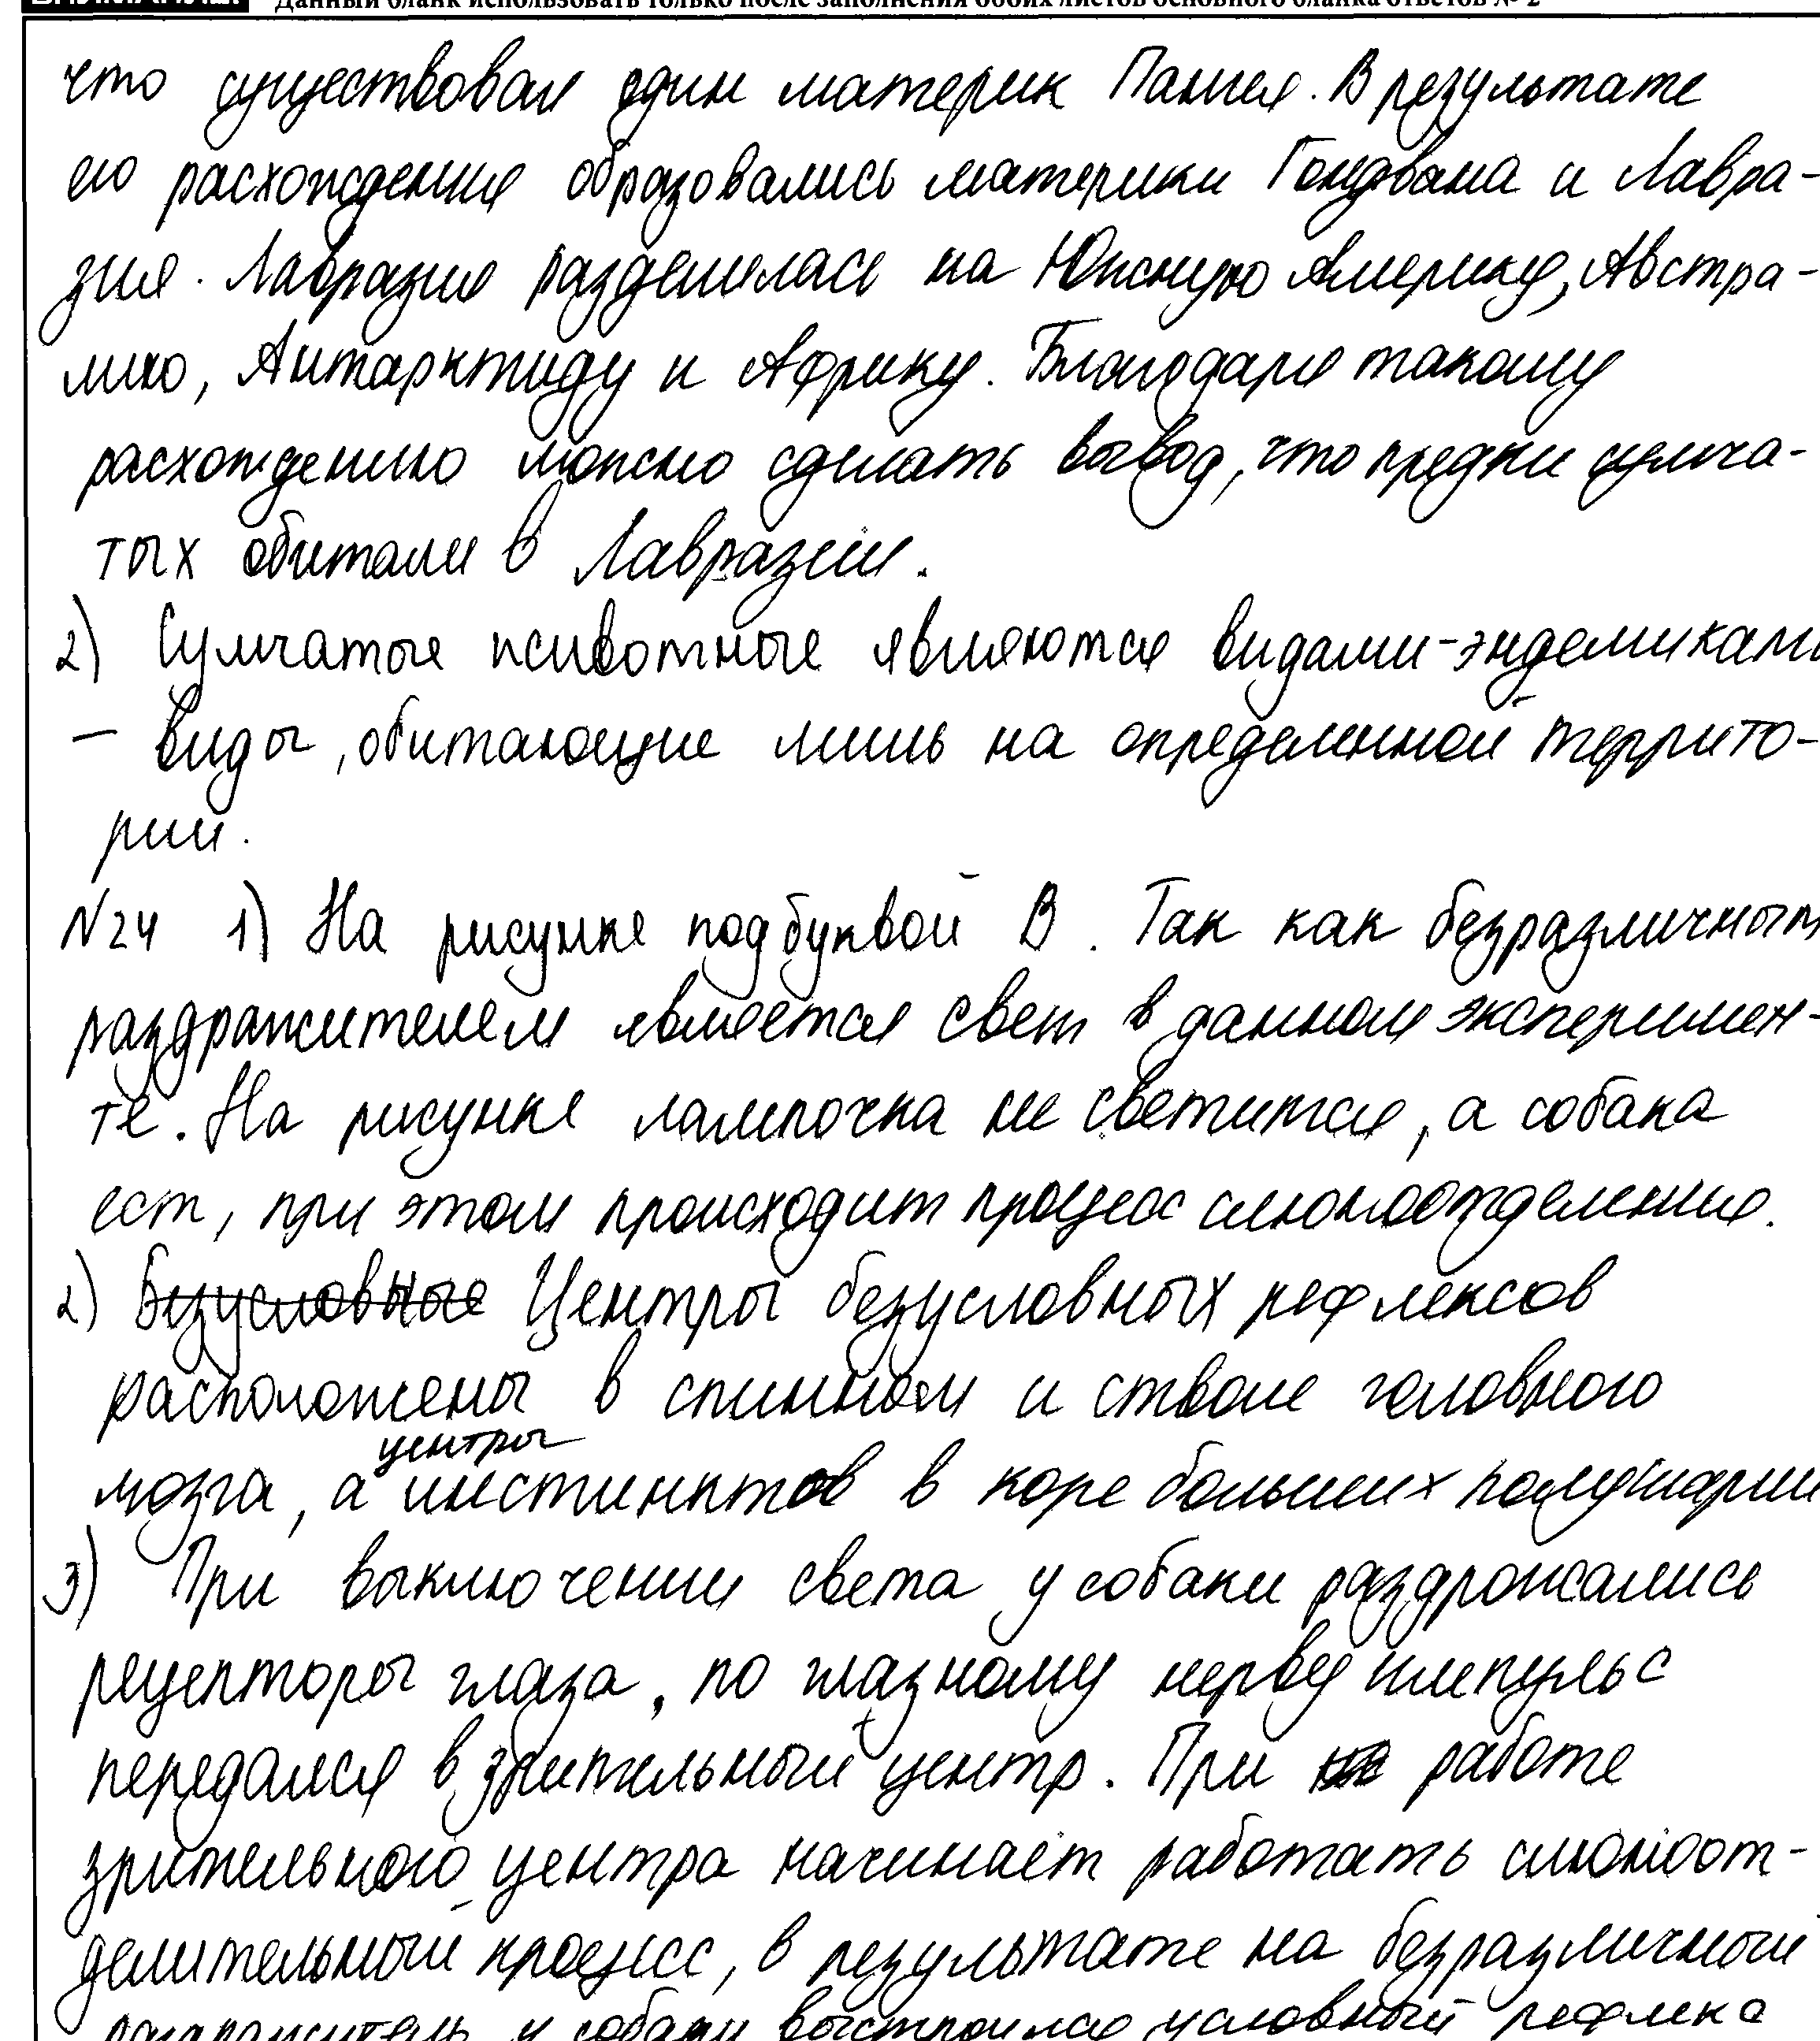 Данный бланк использовать только после заполнения обоих листов основного бланка ответов № 2
что существовал один материк Пангея. В результате
его расхождения образовались материки Гондвана и Лавра-
зия. Лавразия разделилась на Южную Америку, Австра-
лию, Антарктиду и Африку. Благодаря такому
расхождению можно сделать вывод, что предки сумча-
тых обитали в Лавразии.
2) Сумчатые животные являются видами-эндемиками
- виды, обитающие лишь на определенной террито-
рии.
№24 1) На рисунке под буквой В. Так как безразличным
раздражителем является свет в данном эксперимен-
те. На рисунке лампочка не светится, а собака
ест, при этом происходит процесс слюноотделения.
2) Безусловные Центры безусловных рефлексов
расположены в спинном и стволе головного
центры
мозга, а инстинктов в коре больших полушарий
3) При выключении света у собаки раздрожались
рецепторы глаза, по глазному нерву импульс
передался в зрительный центр. При работе
зрительного центра начинает работать слюноот-
делительный процесс, в результате на безразличный
раздражитель у собаки выстроился условный рефлекс